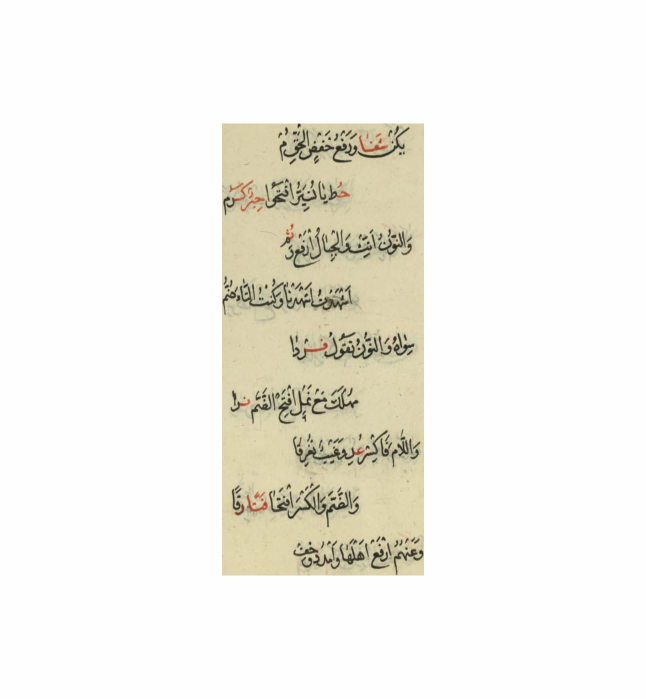 يَكُنْ شَفَا وَرَفْعُ خَفْضِ الْحَقِّ رُمْ
حُط يَا نُسَيِّرُ افْتَحُوا حِبْرٌ كَرُمْ
وَالنُّونُ اَنِّثْ وَالْجِبَالُ ارْفَعْ وَثُمْ
اَشْهَدْتُ اَشْهَدْنَا وَكُنْتَ التَّاءَ ضُمْ
سِوَاهُ وَالنُّونُ نَقُولُ فَرْدَا
مَهْلَكَ مَعْ نَمْلٍ افْتَحْ الضَّمَّ نَدَا
وَاللَّامَ فَاكْسِرْ عُدْ وَغَيْبُ يَغْرِقَا
وَالضَّمَّ وَالْكَسْرَ افْتَحَا فَتًا رَقَا
وَعَنْهُمُ ارْفَعْ اَهْلَهَا وَامْدُدْ وَخِفْ